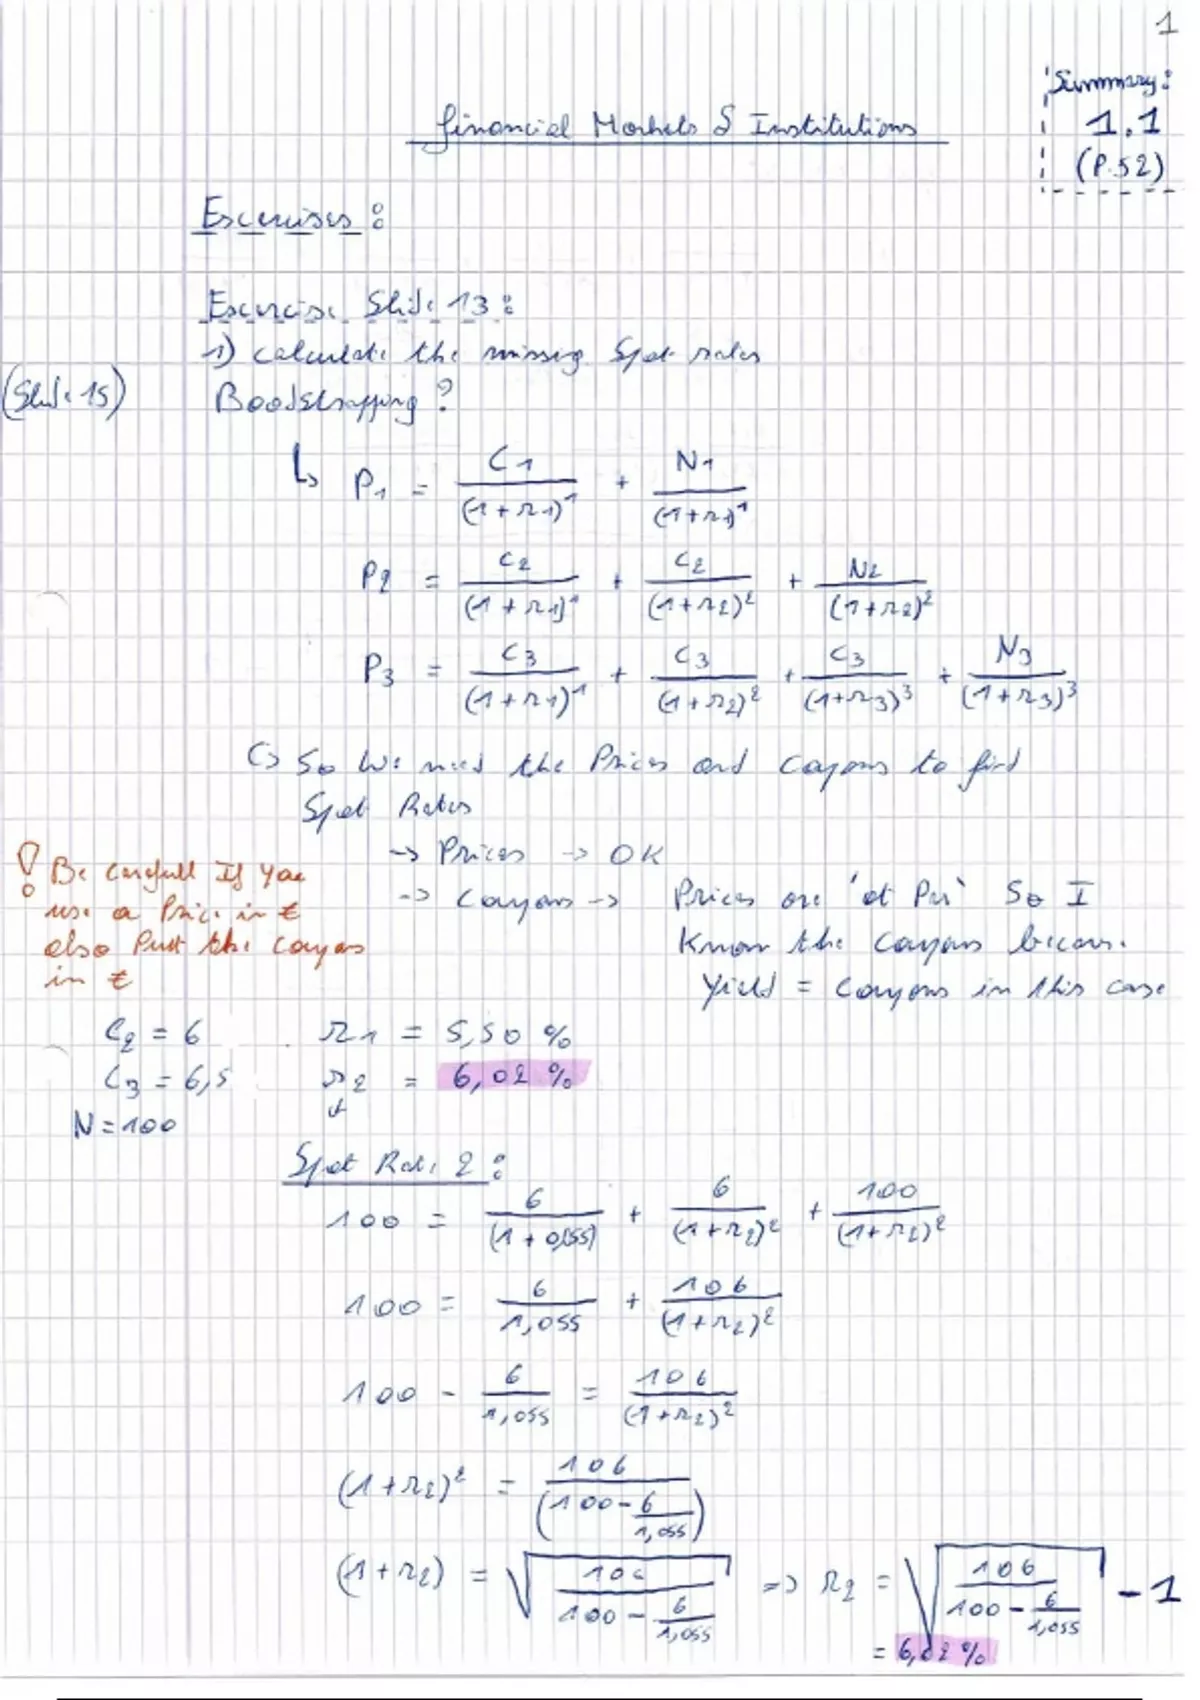 1
Summary:
1.1
(P.52)
financial Markets & Institutions
Exercises :
Exercise Slide 13 :
1) Calculate the missing Spot rates
(Slide 15)
Bootstrapping ?
↳ P1 = C1/(1+r1)^1 + N1/(1+r1)^1
P2 = C2/(1+r1)^1 + C2/(1+r2)^2 + N2/(1+r2)^2
P3 = C3/(1+r1)^1 + C3/(1+r2)^2 + C3/(1+r3)^3 + N3/(1+r3)^3
↳ So we need the Prices and Coupons to find
Spot Rates
-> Prices -> OK
-> Coupons -> Prices are 'at Par' So I
Know the Coupons becaus.
Yield = Coupons in this case
! Be Carefull If you
use a Price in €
also Put the Coupons
in €
C2 = 6
C3 = 6,5
N = 100
r1 = 5,50 %
r2 = 6,02 %
Spot Rate 2 :
100 = 6/(1+0,055) + 6/(1+r2)^2 + 100/(1+r2)^2
100 = 6/1,055 + 106/(1+r2)^2
100 - 6/1,055 = 106/(1+r2)^2
(1+r2)^2 = 106/(100 - 6/1,055)
(1+r2) = √(106/(100 - 6/1,055)) => r2 = √(106/(100 - 6/1,055)) - 1
= 6,02 %